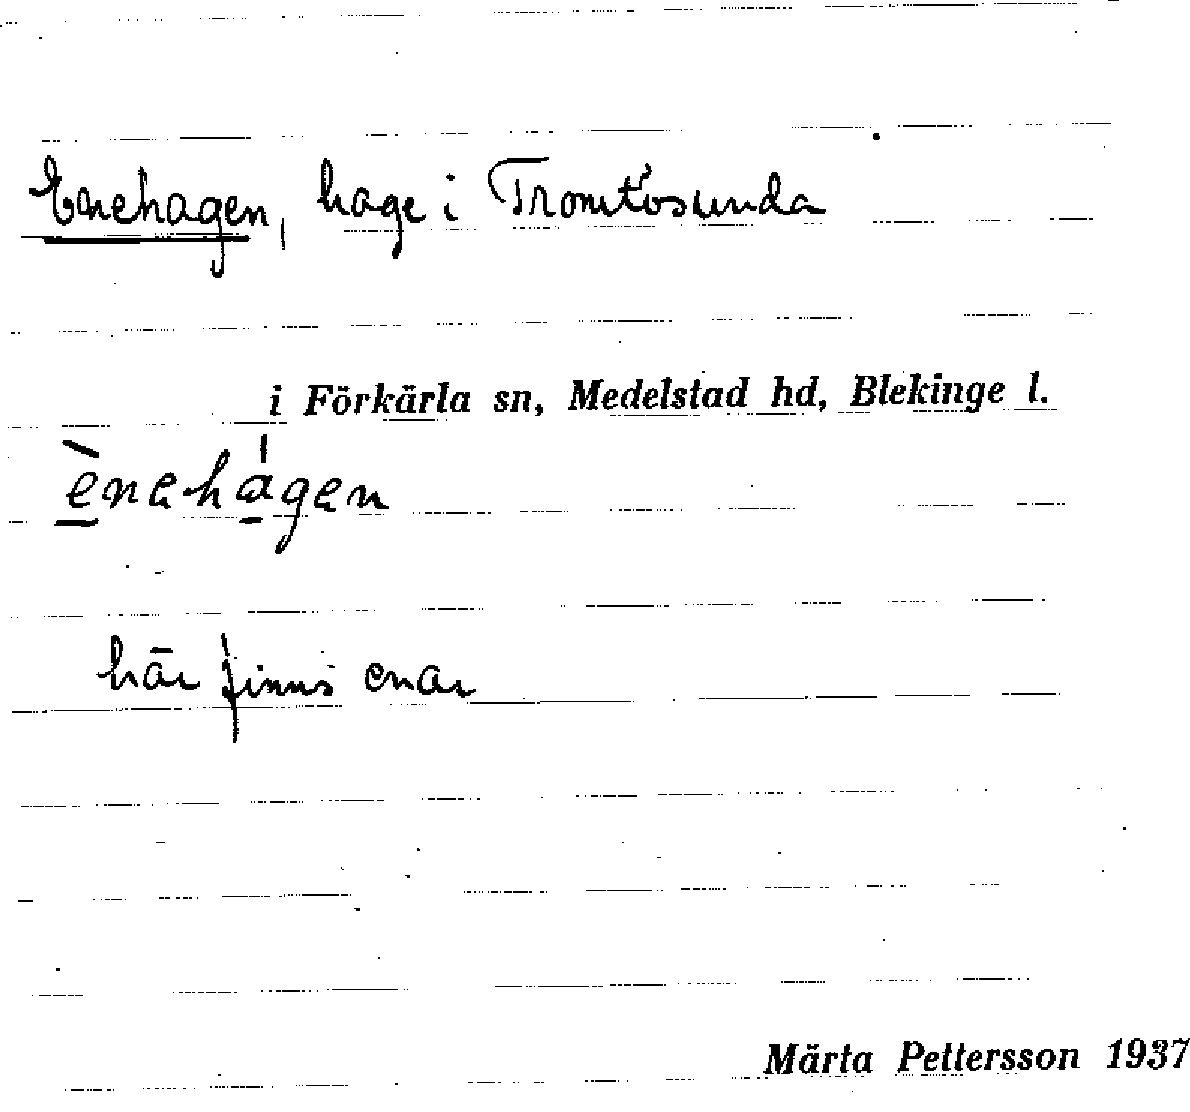 Enehagen, hage i Tromtösunda
i Förkärla sn, Medelstad hd, Blekinge l.
ènehágen
här finns enar
Märta Pettersson 1937